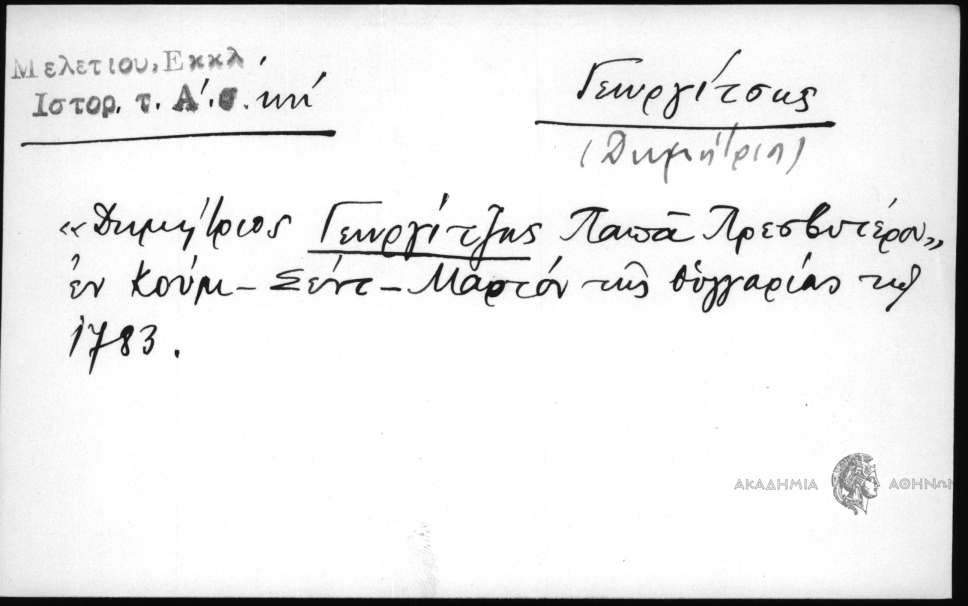 Μελετίου, Εκκλ.
Ιστορ. τ. Α΄. σ. κηί
Γεωργίτσης
(Δημήτριος)
«Δημήτριος Γεωργίτζης Παπᾶ Πρεσβυτέρου»
ἐν Κούμ – Σέντ – Μαρτόν τῆς Οὑγγαρίας τῷ
1783.
ΑΚΑΔΗΜΙΑ ΑΘΗΝΩΝ